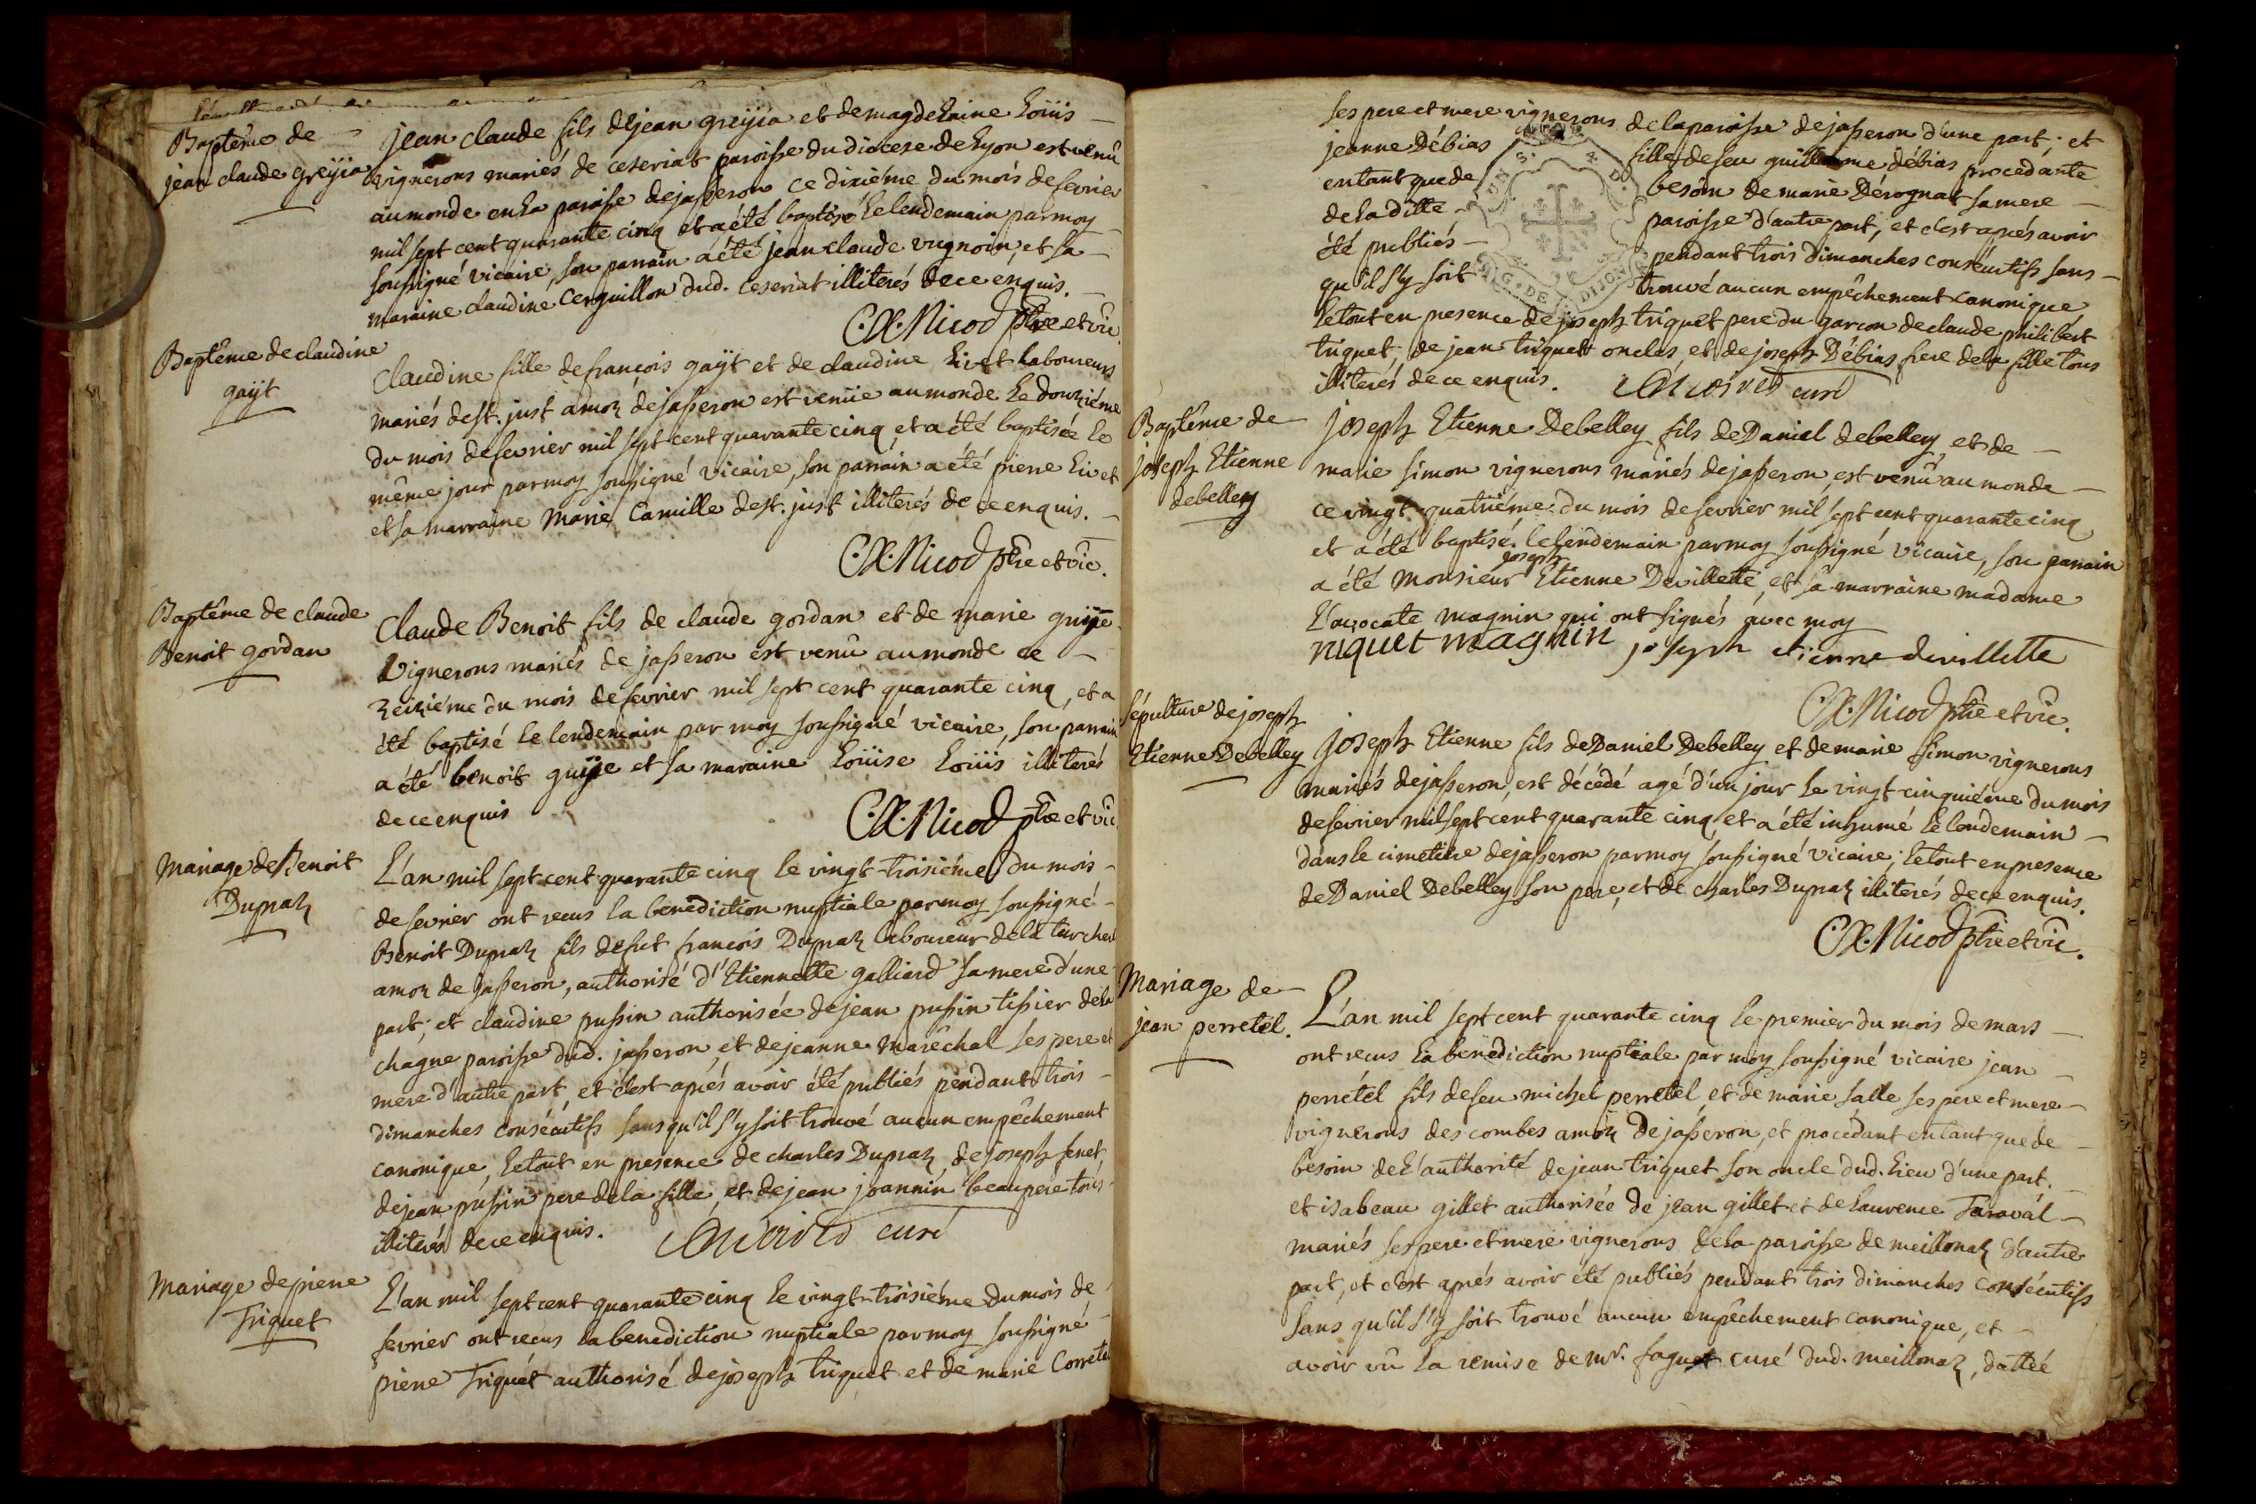 Baptême de
jean claude greyjia
jean claude fils de jean greyjia et de magdelaine Loüis
vignerons mariés de ceseriat paroisse du diocese de Lyon est venû
au monde en la paroisse de jasseron ce dixiéme du mois de fevrier
mil sept cent quarante cinq et a été baptisé le lendemain par moy
soussigné vicaire, son parrain a été jean claude vugnoin, et sa
maraine claudine Cerguillon dud. ceseriat illiterés de ce enquis.
C.X. Nicod ptre et vic.
Baptême de claudine
gaÿt
Claudine fille de françois gaÿt et de claudine Livet Laboureurs
mariés de st. just amoz de jasseron est venüe au monde le douziéme
du mois de fevrier mil sept cent quarante cinq et a été baptisée le
même jour par moy soussigné vicaire, son parrain a été pierre Livet
et sa marraine Marie Camille de st. just illiterés de ce enquis.
C.X. Nicod ptre et vic.
Baptême de claude
Benoit gordan
Claude Benoit fils de claude gordan et de marie guÿe
Vignerons mariés de jasseron est venû au monde ce
zeiziéme du mois de fevrier mil sept cent quarante cinq, et a
été baptisé le lendemain par moy soussigné vicaire, son parrain
a été benoit guÿe et sa maraine Loüise Loüis illiterés
de ce enquis
C.X. Nicod ptre et vic.
Mariage de Benoit
Dupraz
L'an mil sept cent quarante cinq le vingt-troisiéme du mois
de fevrier ont recus la benediction nuptiale par moy soussigné
Benoit Dupraz fils de fut françois Dupraz laboureur de la turchere
amoz de jasseron, authorisé d'Etiennette galliard sa mere d'une
part; et claudine pussin authorisée de jean pussin tissier de la
chagne paroisse dud. jasseron et de jeanne Maréchal ses pere et
mere d'autre part, et c'est aprés avoir été publiés pendant trois
dimanches consécutifs sans qu'il s'y soit trouvé aucun empêchement
canonique, le tout en presence de charles Dupraz, de joseph fenet
de jean pussin pere de la fille, et de jean joannin beaupere tous
illiterés de ce enquis. curé
Mariage de pierre
Triquet
L'an mil sept cent quarante cinq le vingt-troisiéme du mois de
fevrier ont recus la benediction nuptiale par moy soussigné
pierre Triquet authorisé de joseph triquet et de marie Corretel
ses pere et mere vignerons de la paroisse de jasseron d'une part; et
jeanne Débias fille de feu guillaume débias procédante
entant que de besoin de marie Dérognat sa mere
de la ditte paroisse d'autre part, et c'est aprés avoir
été publiés pendant trois dimanches consécutifs sans
qu'il s'y soit trouvé aucun empêchement canonique
le tout en presence de joseph triquet pere du garçon de claude philibert
triquet, de jean triquet oncles, et de joseph Débias frere de la fille tous
illiterés de ce enquis. curé
Baptême de
joseph Etienne
debelley
joseph Etienne Debelley fils de Daniel debelley, et de
marie simon vignerons mariés de jasseron est venû au monde
ce vingt-quatriéme du mois de fevrier mil sept cent quarante cinq
et a été baptisé le lendemain par moy soussigné vicaire, son parrain
joseph
a été monsieur Etienne Devillette, et sa marraine madame
L'avocate magnin qui ont signés avec moy
niquet magnin joseph etienne devillette
C.X. Nicod ptre et vic.
sépulture de joseph
Etienne Debelley
joseph Etienne fils de Daniel Debelley et de marie simon vignerons
mariés de jasseron, est décédé agé d'un jour le vingt-cinquiéme du mois
de fevrier mil sept cent quarante cinq, et a été inhumé le lendemain
dans le cimetiere de jasseron par moy soussigné vicaire; le tout en presence
de Daniel Debelley son pere, et de charles Dupraz illiterés de ce enquis.
C.X. Nicod ptre et vic.
Mariage de
jean perretel.
L'an mil sept cent quarante cinq le premier du mois de mars
ont recus la benediction nuptiale par moy soussigné vicaire jean
perretel fils de feu michel perretel et de marie salle ses pere et mere
vignerons des combes amoz de jasseron, et procédant entant que de
besoin de l'authorité de jean triquet son oncle dud. Lieu d'une part.
et isabeau gillet authorisée de jean gillet et de Laurence Taraval
mariés ses pere et mere vignerons de la paroisse de meillonaz d'autre
part, et c'est aprés avoir été publiés pendant trois dimanches consécutifs
sans qu'il s'y soit trouvé aucun empêchement canonique, et
avoir vû la remise de mr. faguet curé dud. meillonaz, dattée